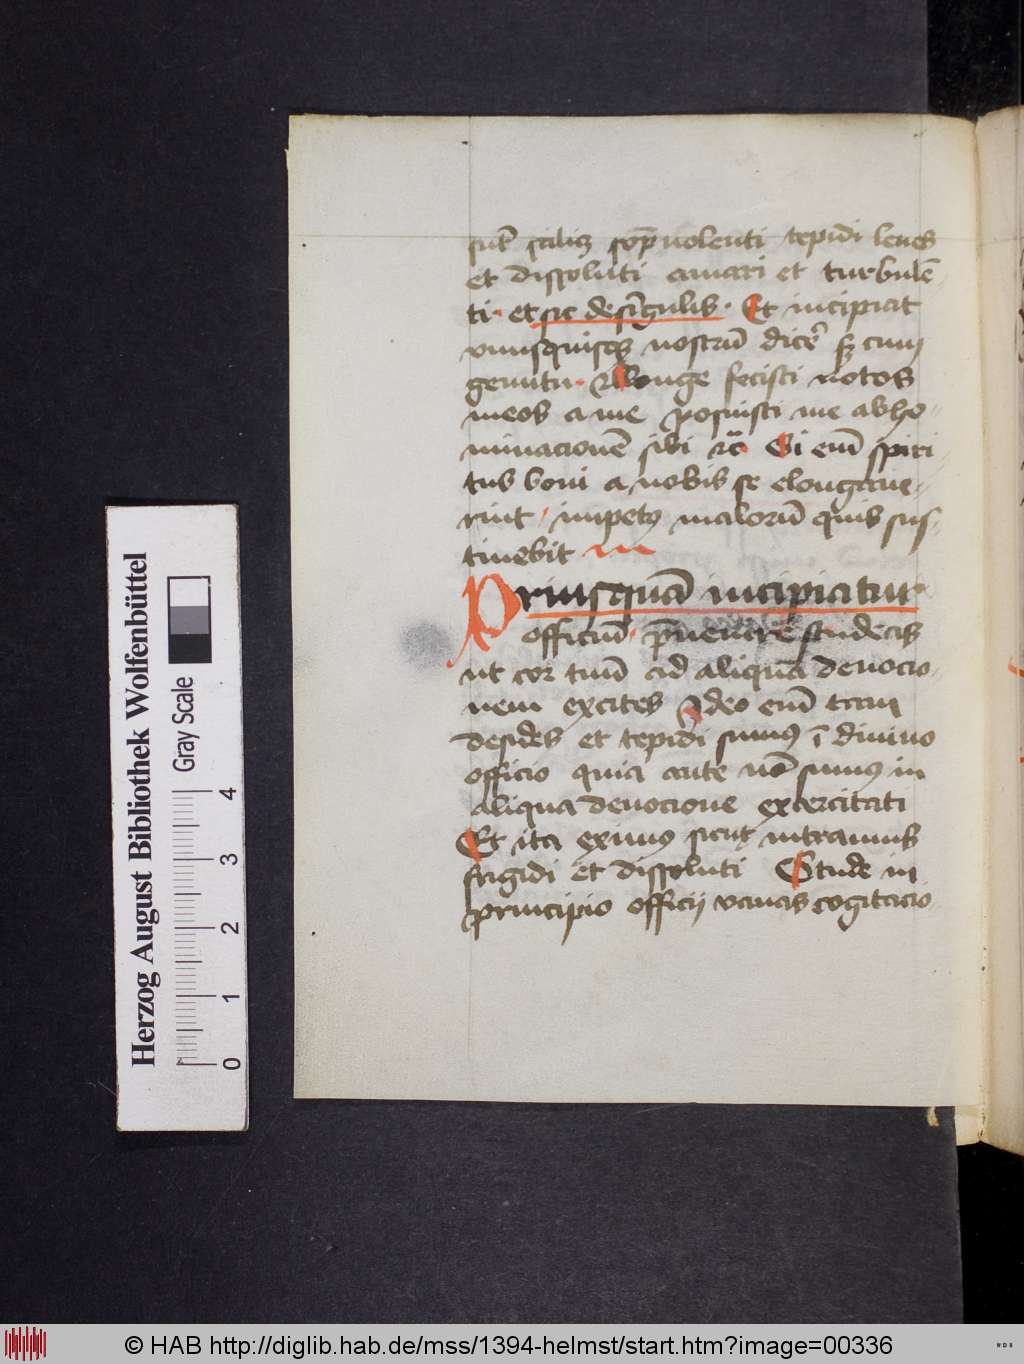 et dissoluti amari et turbulē
ti· et sic de singulis· Et incipiat
vnusquisqꝫ nostrū dicere cum
gemitu· Elonge fecisti notos
meos a me posuisti me abho-
minacionē sibi ⁊c̄ Si enī spiri-
tus boni a nobis se elongaue-
rint· impetꝰ malorū quis sus-
tinebit
Priusquā incipiatur
officiū· p̄uenire studeas
ut cor tuū ad aliquā deuocio-
nem excites Ideo enī tam
desides et tepidi sumꝰ ī diuino
officio quia ante nō sumꝰ in
aliqua deuocione excercitati
Et ita eximꝰ sicut intramus
frigidi et dissoluti Stude in
principio officii vanas cogitacio-
Herzog August Bibliothek Wolfenbüttel
Gray Scale
0 1 2 3 4
© HAB http://diglib.hab.de/mss/1394-helmst/start.htm?image=00336